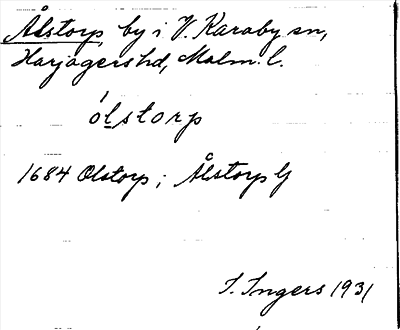 Ålstorp by i V. Karaby sn,
Harjagershd, Malm. l.
ólstorp
1684 Olstorp; Ålstorp G
I. Ingers 1931